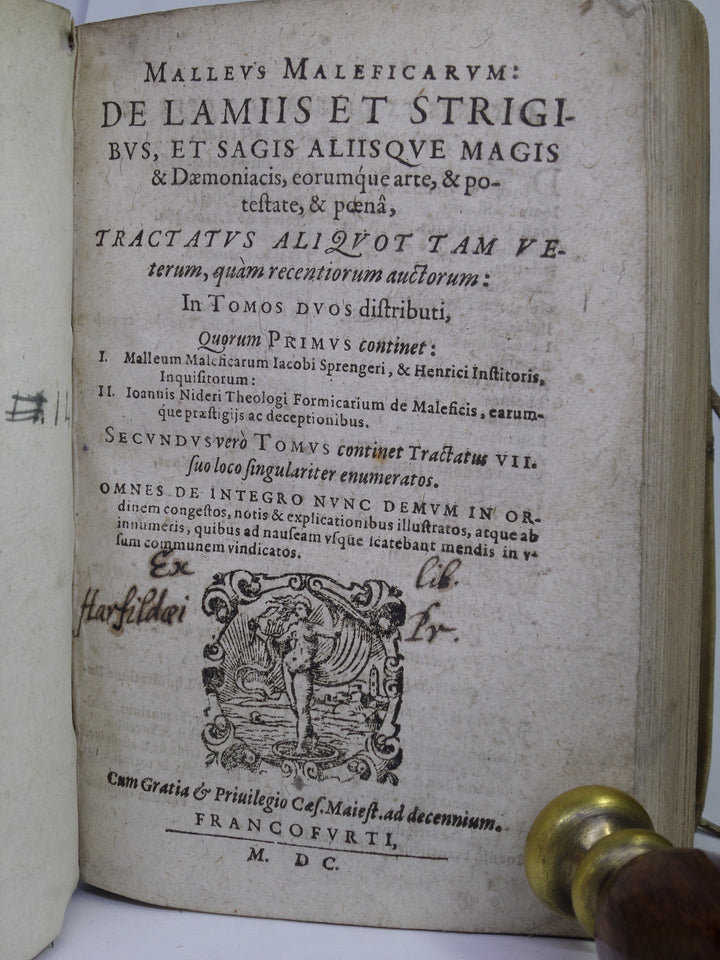 MALLEVS MALEFICARVM:
DE LAMIIS ET STRIGI-
BVS, ET SAGIS ALIISQVE MAGIS
& Dæmoniacis, eorumq́ue arte, & po-
testate, & pœnâ,
TRACTATVS ALIQVOT TAM VE-
terum, quàm recentiorum auctorum:
In TOMOS DVOS distributi,
Quorum PRIMVS continet:
I. Malleum Maleficarum Iacobi Sprengeri, & Henrici Institoris,
Inquisitorum:
II. Ioannis Nideri Theologi Formicarium de Maleficis, earum-
que præstigijs ac deceptionibus.
SECVNDVS verò TOMVS continet Tractatus VII.
suo loco singulariter enumeratos.
OMNES DE INTEGRO NVNC DEMVM IN OR-
dinem congestos, notis & explicationibus illustratos, atque ab
innumeris, quibus ad nauseam vsque scatebant mendis in v-
sum communem vindicatos.
Ex lib.
Harfildæi Pr.
Cum Gratia & Priuilegio Cæs. Maiest. ad decennium.
FRANCOFVRTI,
M. D C.